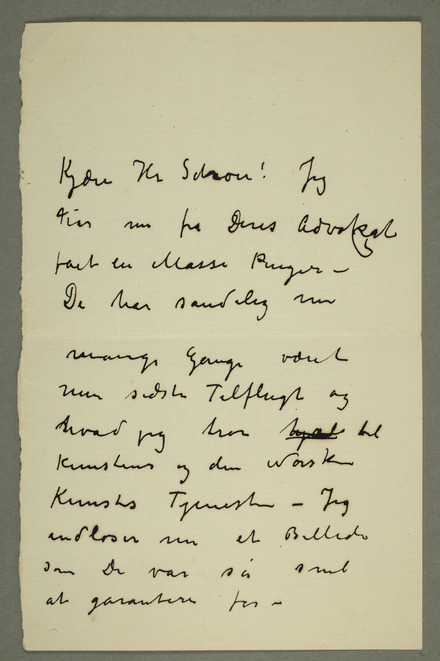 Kjære Hr Schou! Jeg
har nu fra Deres Advokat
faaet en Masse Penger –
De har sandelig nu
mange Gange været
min sidste Tilflugt og
hvad jeg tror til
Kunstens og den norske
Kunsts Tjeneste – Jeg
indløser nu et Billede
som De var så snil
at garantere for –